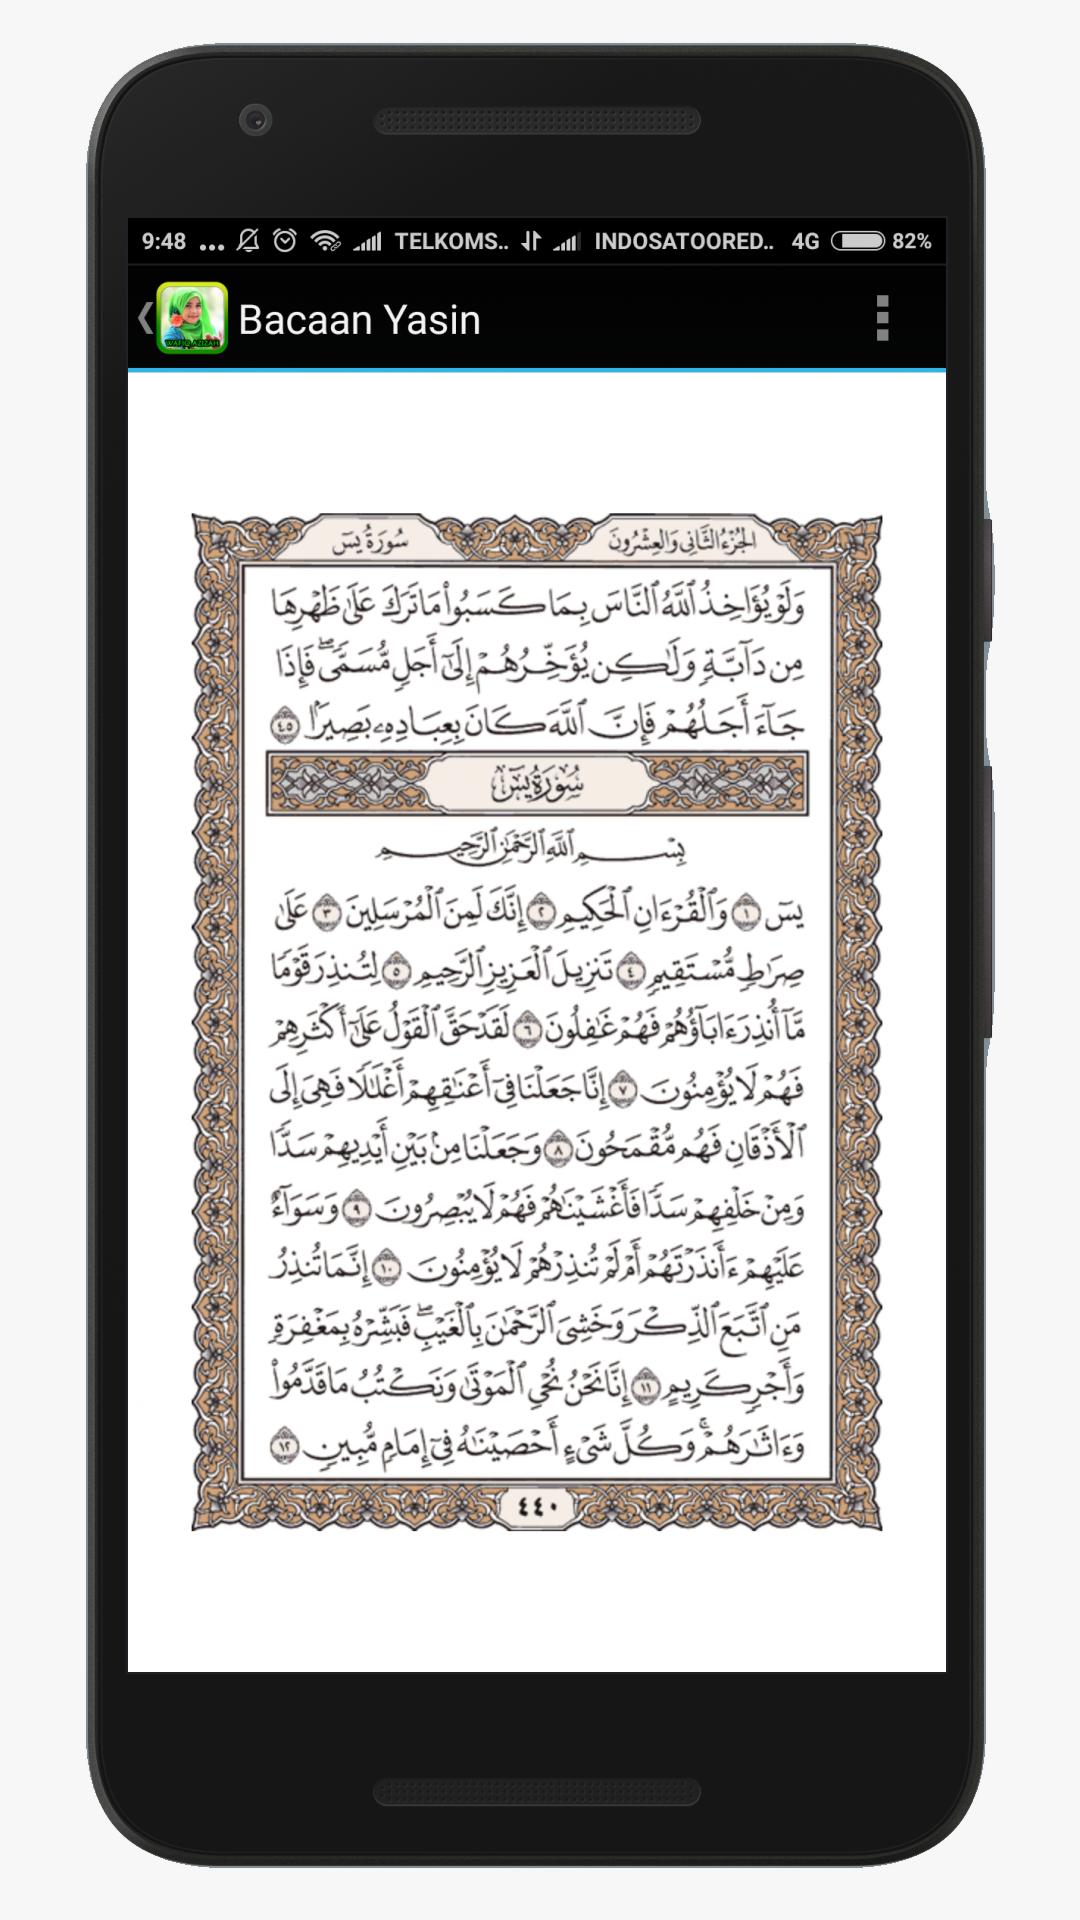 9:48 ... TELKOMS.. INDOSATOORED.. 4G 82%
WAFIQ AZIZAH
Bacaan Yasin
الجُزْءُ الثَّانِي وَالعِشْرُونَ سُورَةُ يسٓ
وَلَوْ يُؤَاخِذُ ٱللَّهُ ٱلنَّاسَ بِمَا كَسَبُوا۟ مَا تَرَكَ عَلَىٰ ظَهْرِهَا
مِن دَآبَّةٍ وَلَـٰكِن يُؤَخِّرُهُمْ إِلَىٰٓ أَجَلٍ مُّسَمًّى ۖ فَإِذَا
جَآءَ أَجَلُهُمْ فَإِنَّ ٱللَّهَ كَانَ بِعِبَادِهِۦ بَصِيرًۢا ٤٥
سُورَةُ يسٓ
بِسْمِ ٱللَّهِ ٱلرَّحْمَـٰنِ ٱلرَّحِيمِ
يسٓ ١ وَٱلْقُرْءَانِ ٱلْحَكِيمِ ٢ إِنَّكَ لَمِنَ ٱلْمُرْسَلِينَ ٣ عَلَىٰ
صِرَٰطٍ مُّسْتَقِيمٍ ٤ تَنزِيلَ ٱلْعَزِيزِ ٱلرَّحِيمِ ٥ لِتُنذِرَ قَوْمًا
مَّآ أُنذِرَ ءَابَآؤُهُمْ فَهُمْ غَـٰفِلُونَ ٦ لَقَدْ حَقَّ ٱلْقَوْلُ عَلَىٰٓ أَكْثَرِهِمْ
فَهُمْ لَا يُؤْمِنُونَ ٧ إِنَّا جَعَلْنَا فِىٓ أَعْنَـٰقِهِمْ أَغْلَـٰلًا فَهِىَ إِلَى
ٱلْأَذْقَانِ فَهُم مُّقْمَحُونَ ٨ وَجَعَلْنَا مِنۢ بَيْنِ أَيْدِيهِمْ سَدًّا
وَمِنْ خَلْفِهِمْ سَدًّا فَأَغْشَيْنَـٰهُمْ فَهُمْ لَا يُبْصِرُونَ ٩ وَسَوَآءٌ
عَلَيْهِمْ ءَأَنذَرْتَهُمْ أَمْ لَمْ تُنذِرْهُمْ لَا يُؤْمِنُونَ ١٠ إِنَّمَا تُنذِرُ
مَنِ ٱتَّبَعَ ٱلذِّكْرَ وَخَشِىَ ٱلرَّحْمَـٰنَ بِٱلْغَيْبِ ۖ فَبَشِّرْهُ بِمَغْفِرَةٍ
وَأَجْرٍ كَرِيمٍ ١١ إِنَّا نَحْنُ نُحْىِ ٱلْمَوْتَىٰ وَنَكْتُبُ مَا قَدَّمُوا۟
وَءَاثَـٰرَهُمْ ۚ وَكُلَّ شَىْءٍ أَحْصَيْنَـٰهُ فِىٓ إِمَامٍ مُّبِينٍ ١٢
٤٤٠